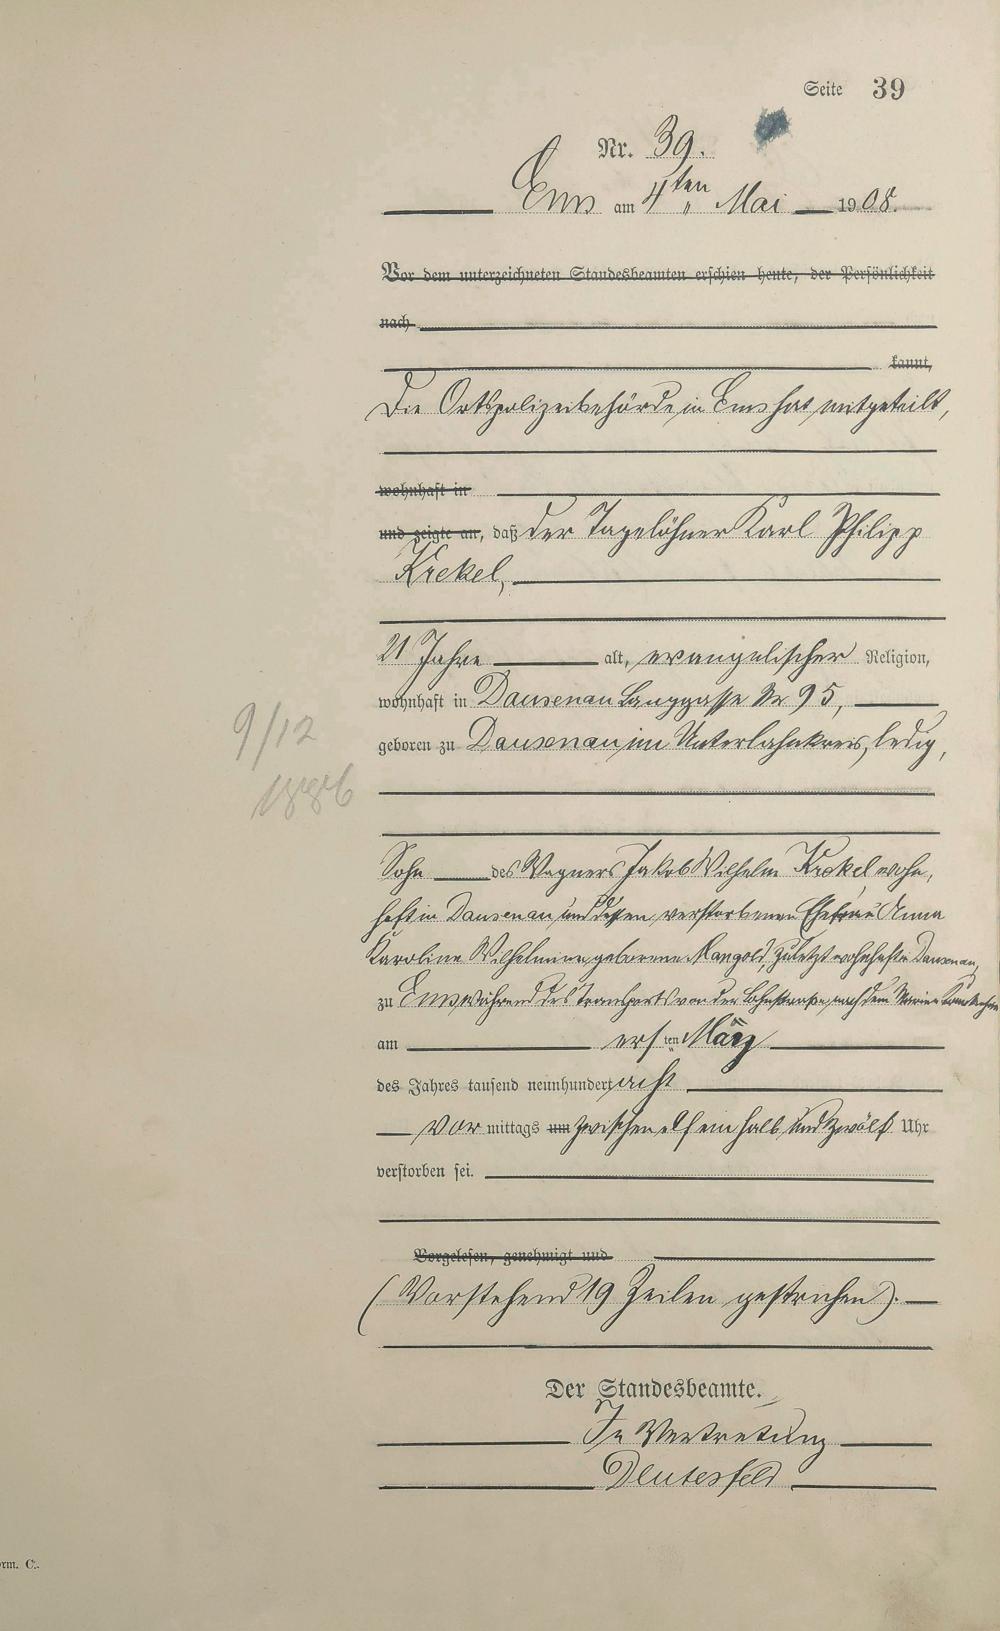 Seite 39
Nr. 39.
Ems am 4ten Mai 1908.
Vor dem unterzeichneten Standesbeamten erschien heute, der Persönlichkeit
nach
kannt,
Die Ortspolizeibehörde in Ems hat mitgeteilt,
wohnhaft in
und zeigte an, daß der Tagelöhner Karl Philipp
Krekel,
21 Jahre alt, evangelischer Religion,
wohnhaft in Dausenau Langgasse Nr 95,
geboren zu Dausenau im Unterlahnkreis, ledig,
9/12
1886
Sohn des Wagners Jakob Wilhelm Krekel wohn,
haft in Dausenau und dessen verstorbenen Ehefrau Anna
Karoline Wilhelmine geborene Mangold, zuletzt wohnhaft in Dausenau,
zu Ems während des Transports von der Lahnstraße nach dem Marien Krankenhaus
am ersten März
des Jahres tausend neunhundert acht
Vor mittags um zwischen elf ein halb und zwölf Uhr
verstorben sei.
Vorgelesen, genehmigt und
(Vorstehend 19 Zeilen gestrichen).
Der Standesbeamte.
In Vertretung
rm. C.